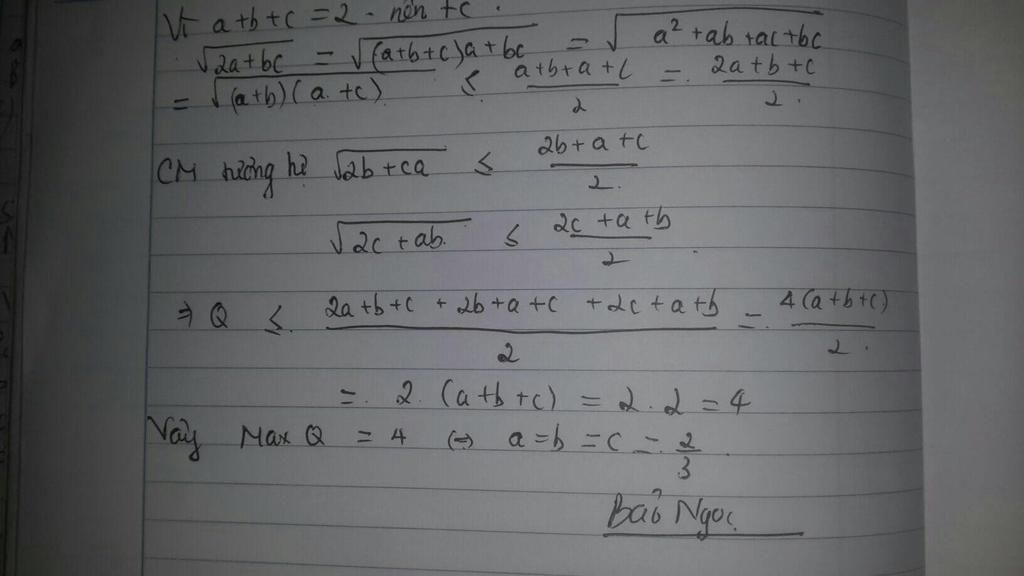 Vì a+b+c = 2. nên +c.
√(2a+bc) = √((a+b+c)a+bc) = √(a²+ab+ac+bc)
= √((a+b)(a+c)) ≤ (a+b+a+c)/2 = (2a+b+c)/2.
CM tương tự √(2b+ca) ≤ (2b+a+c)/2.
√(2c+ab) ≤ (2c+a+b)/2
⇒ Q ≤ (2a+b+c+2b+a+c+2c+a+b)/2 = 4(a+b+c)/2.
= 2.(a+b+c) = 2.2 = 4
Vậy Max Q = 4 (=) a=b=c = 2/3.
Bảo Ngọc.